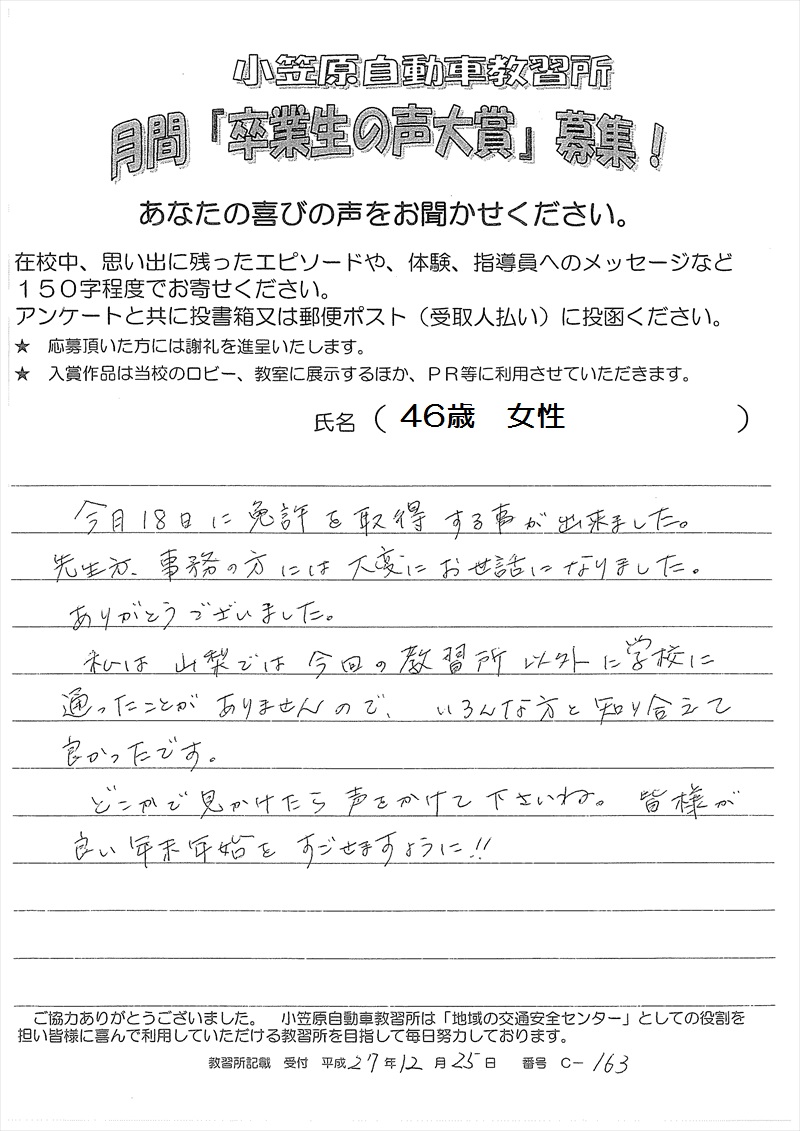 小笠原自動車教習所
月間『卒業生の声大賞』募集！
あなたの喜びの声をお聞かせください。
在校中、思い出に残ったエピソードや、体験、指導員へのメッセージなど
１５０字程度でお寄せください。
アンケートと共に投書箱又は郵便ポスト（受取人払い）に投函ください。
★　応募頂いた方には謝礼を進呈いたします。
★　入賞作品は当校のロビー、教室に展示するほか、ＰＲ等に利用させていただきます。
氏名（ 46歳　女性 ）
今月18日に免許を取得する事が出来ました。
先生方、事務の方には大変にお世話になりました。
ありがとうございました。
私は山梨では今回の教習所以外に学校に
通ったことがありませんので、いろんな方と知り合えて
良かったです。
どこかで見かけたら声をかけて下さいね。皆様が
良い年末年始をすごせますように!!
ご協力ありがとうございました。　小笠原自動車教習所は「地域の交通安全センター」としての役割を
担い皆様に喜んで利用していただける教習所を目指して毎日努力しております。
教習所記載　受付　平成27年12月25日　番号　C－163